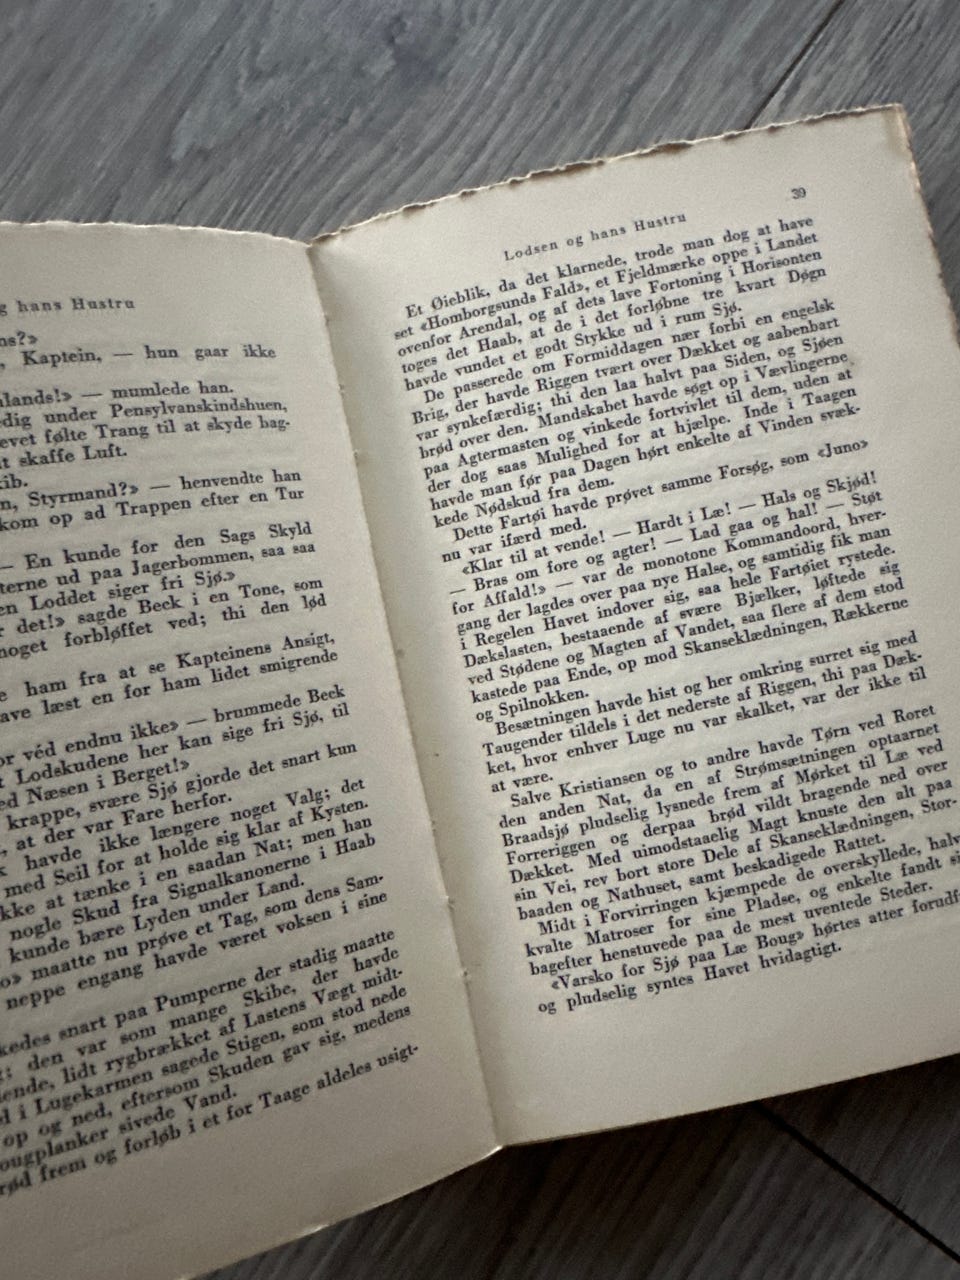 hans Hustru
Kaptein, — hun gaar ikke
— mumlede han.
under Pensylvanskindshuen,
følte Trang til at skyde bag-
skaffe Luft.
Styrmand?» — henvendte han
kom op ad Trappen efter en Tur
— En kunde for den Sags Skyld
ud paa Jagerbommen, saa saa
Loddet siger fri Sjø.»
det!» sagde Beck i en Tone, som
forbløffet ved; thi den lød
ham fra at se Kapteinens Ansigt,
læst en for ham lidet smigrende
véd endnu ikke» — brummede Beck
Lodskudene her kan sige fri Sjø, til
Næsen i Berget!»
krappe, svære Sjø gjorde det snart kun
at der var Fare herfor.
havde ikke længere noget Valg; det
med Seil for at holde sig klar af Kysten.
at tænke i en saadan Nat; men han
nogle Skud fra Signalkanonerne i Haab
kunde bære Lyden under Land.
maatte nu prøve et Tag, som dens Sam-
neppe engang havde været voksen i sine
snart paa Pumperne der stadig maatte
den var som mange Skibe, der havde
lidt rygbrækket af Lastens Vægt midt-
i Lugekarmen sagede Stigen, som stod nede
op og ned, eftersom Skuden gav sig, medens
sivede Vand.
frem og forløb i et for Taage aldeles usigt-
39
Lodsen og hans Hustru
Et Øieblik, da det klarnede, trode man dog at have
set «Homborgsunds Fald», et Fjeldmærke oppe i Landet
ovenfor Arendal, og af dets lave Fortoning i Horisonten
toges det Haab, at de i det forløbne tre kvart Døgn
havde vundet et godt Stykke ud i rum Sjø.
De passerede om Formiddagen nær forbi en engelsk
Brig, der havde Riggen tvært over Dækket og aabenbart
var synkefærdig; thi den laa halvt paa Siden, og Sjøen
brød over den. Mandskabet havde søgt op i Vævlingerne
paa Agtermasten og vinkede fortvivlet til dem, uden at
der dog saas Mulighed for at hjælpe. Inde i Taagen
havde man før paa Dagen hørt enkelte af Vinden svæk-
kede Nødskud fra dem.
Dette Fartøi havde prøvet samme Forsøg, som «Juno»
nu var ifærd med.
«Klar til at vende! — Hardt i Læ! — Hals og Skjød!
— Bras om fore og agter! — Lad gaa og hal! — Støt
for Affald!» — var de monotone Kommandoord, hver-
gang der lagdes over paa nye Halse, og samtidig fik man
i Regelen Havet indover sig, saa hele Fartøiet rystede.
Dækslasten, bestaaende af svære Bjælker, løftede sig
ved Stødene og Magten af Vandet, saa flere af dem stod
kastede paa Ende, op mod Skanseklædningen, Rækkerne
og Spilnokken.
Besætningen havde hist og her omkring surret sig med
Taugender tildels i det nederste af Riggen, thi paa Dæk-
ket, hvor enhver Luge nu var skalket, var der ikke til
at være.
Salve Kristiansen og to andre havde Tørn ved Roret
den anden Nat, da en af Strømsætningen optaarnet
Braadsjø pludselig lysnede frem af Mørket til Læ ved
Forreriggen og derpaa brød vildt bragende ned over
Dækket. Med uimodstaaelig Magt knuste den alt paa
sin Vei, rev bort store Dele af Skanseklædningen, Stor-
baaden og Nathuset, samt beskadigede Rattet.
Midt i Forvirringen kjæmpede de overskyllede,
kvalte Matroser for sine Pladse, og enkelte fandt
bagefter henstuvede paa de mest uventede Steder.
«Varsko for Sjø paa Læ Boug» hørtes atter
og pludselig syntes Havet hvidagtigt.